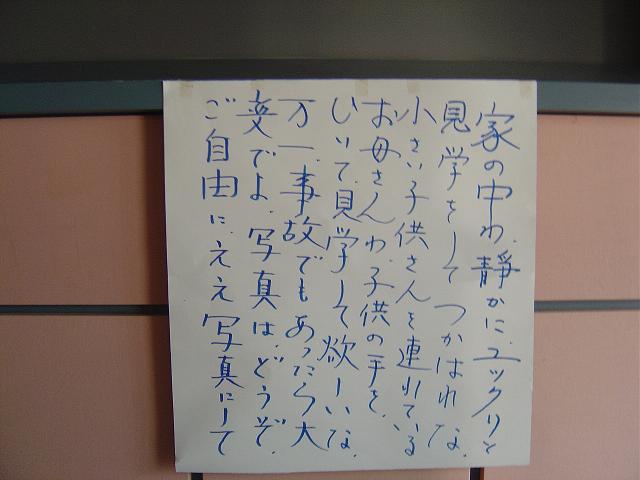 家の中わ、静かに、ユックリと
見学をして つかはれな、
小さい子供さんを連れている
お母さんわ、子供の手を、
ひいて、見学して欲しいな、
万一、事故でもあったら大
変でよ、写真は、どうぞ、
ご自由に、ええ写真にして